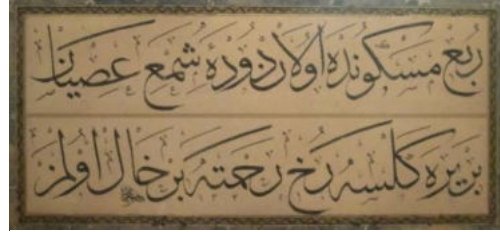 ربع مسكونده اولان دودهٔ شمع عصيان
بر يره كلسه رخ رحمته بر خال اولمز